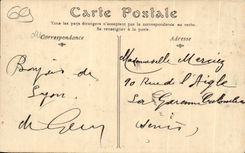 69
Carte Postale
Tous les pays étrangers n'acceptent pas la correspondance au recto.
Se renseigner à la poste.
Correspondance
Adresse
Mademoiselle Mercier
10 Rue de l'Aigle
La Garenne Colombes
(Seine)
de
Lyon
de